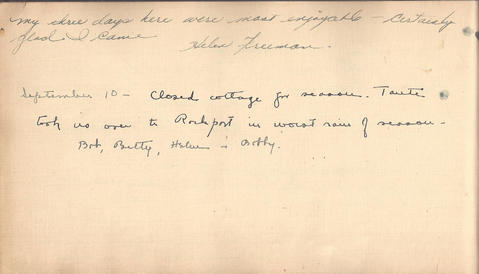 my three days here were most enjoyable - Certainly
glad I came
Helen Freeman.
September 10 - Closed cottage for season.
took us over to Rockport in worst rain of season -
Bob, Betty, Helen & Bobby.